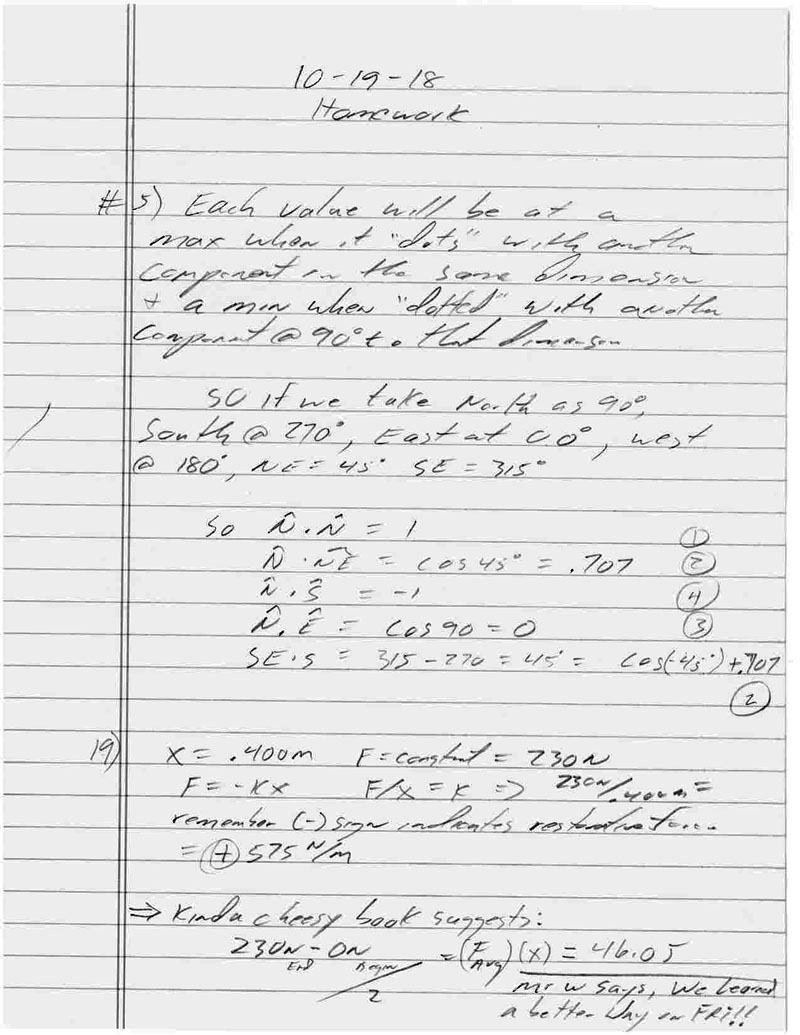 10-19-18
Homework
#5) Each value will be at a
max when it "dots" with another
component in the same dimension
+ a min when "dotted" with another
component @ 90° to that dimension
SO if we take North as 90°,
South @ 270°, East at 0.0°, west
@ 180°, NE = 45° SE = 315°
So N̂ · N̂ = 1 ①
N̂ · N̂E = cos 45° = .707 ②
N̂ · Ŝ = -1 ④
N̂ · Ê = cos 90 = 0 ③
SE · S = 315 - 270 = 45° = cos(-45°) + .707
②
19) X = .400m F = constant = 230N
F = -Kx F/x = K => 230N/.400m =
remember (-) sign indicates
= ⊕ 575 N/m
⇒ Kinda cheesy book suggests:
230N - 0N = (F Avg)(x) = 46.0J
End Begin
2
Mr W says, We Learned
a better way on FRI!!